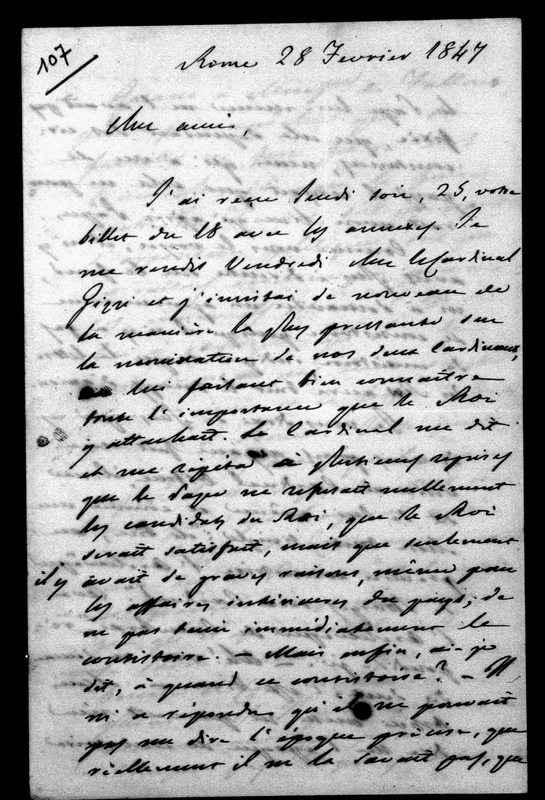 107
Rome 28 Fevrier 1847
Cher ami,
J'ai reçu lundi soir, 25, votre
billet du 18 avec les annexes. Je
me rendis Vendredi chez le Cardinal
Gizzi et j'insistai de nouveau de
la manière la plus pressante sur
la nomination de nos deux Cardinaux,
lui faisant bien connaître
toute l'importance que le Roi
y attachait. Le Cardinal me dit
et me répéta à plusieurs reprises
que le Pape ne refusait nullement
les candidats du Roi, que le Roi
serait satisfait, mais que seulement
il y avait de graves raisons, même pour
les affaires intérieures du pays, de
ne pas tenir immédiatement le
consistoire. – Mais enfin, ai-je
dit, à quand ce consistoire? – Il
m'a répondu qu'il ne pouvait
pas me dire l'époque précise, que
réellement il ne la savait pas, que